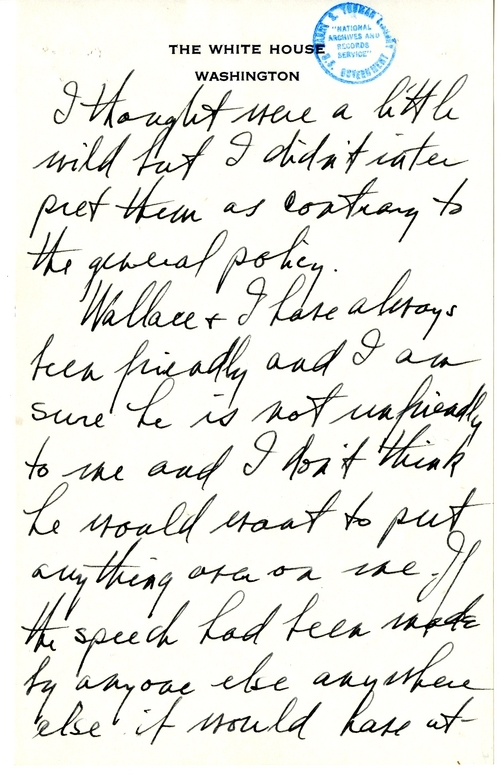 THE WHITE HOUSE
WASHINGTON
HARRY S. TRUMAN LIBRARY
"NATIONAL
ARCHIVES AND
RECORDS
SERVICE"
U.S. GOVERNMENT
I thought were a little
wild but I didn't inter
pret them as contrary to
the general policy.
Wallace & I have always
been friendly and I am
sure he is not unfriendly
to me and I don't think
he would want to put
anything over on me. If
the speech had been made
by anyone else anywhere
else it would have at-